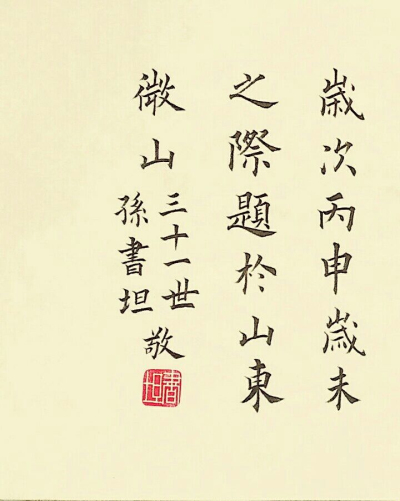 歲次丙申歲末
之際題於山東
微山
三十一世
孫書坦
敬
書坦